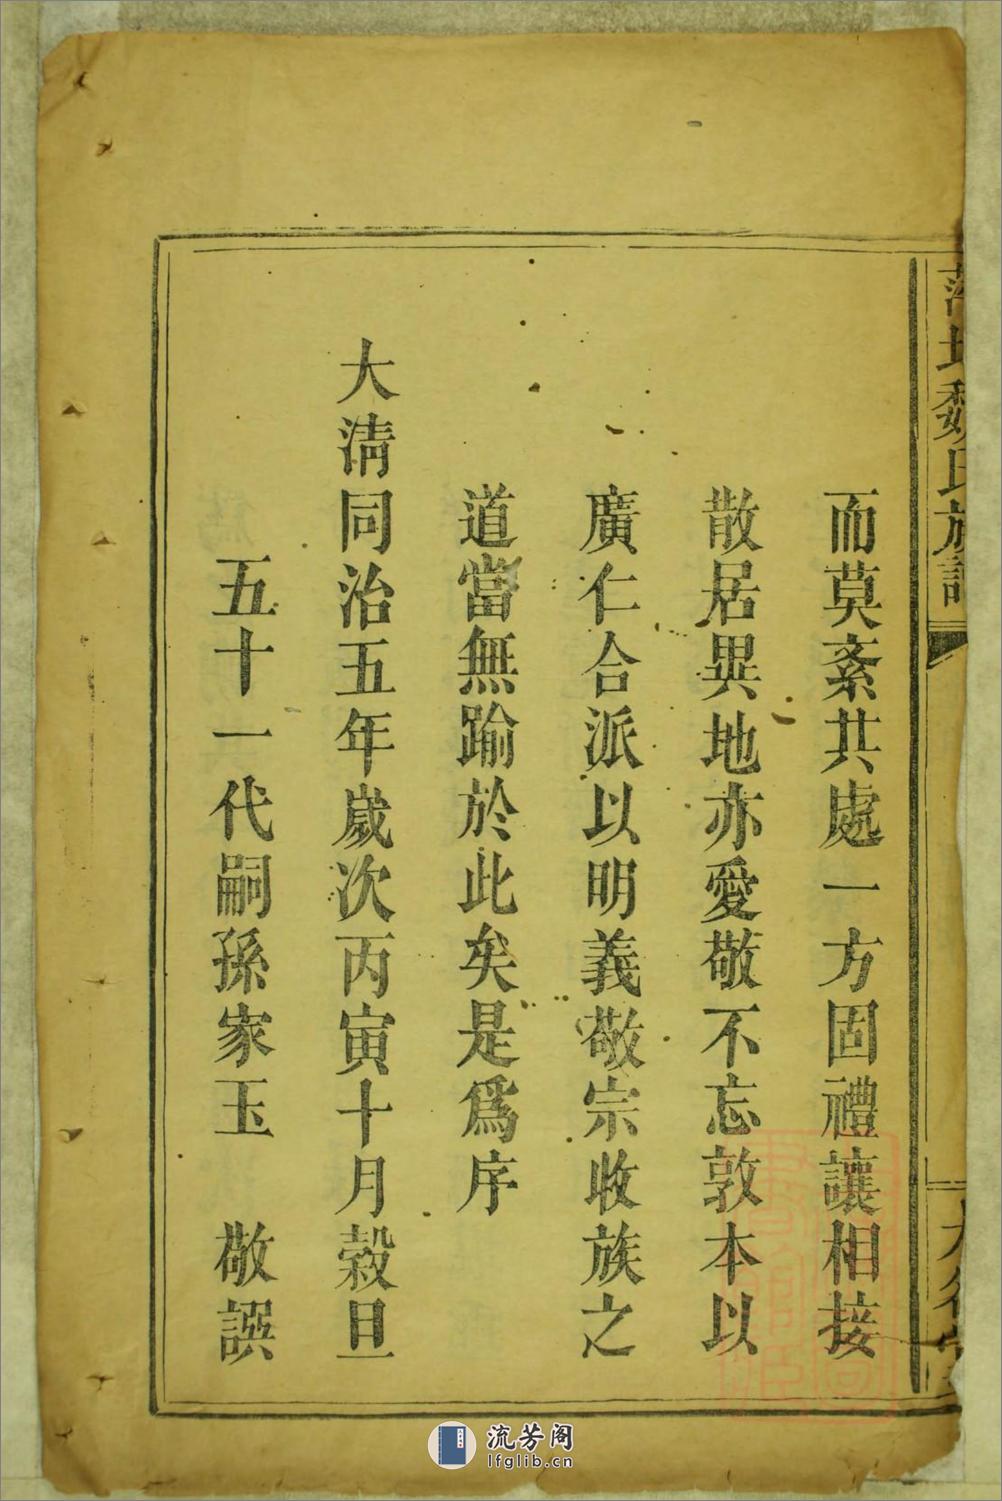 魏氏族譜
而莫紊共處一方固禮讓相接
散居異地亦愛敬不忘敦本以
廣仁合派以明義敬宗收族之
道當無踰於此矣是爲序
大清同治五年歲次丙寅十月榖旦
五十一代嗣孫家玉 敬譔
流芳阁
lfglib.cn